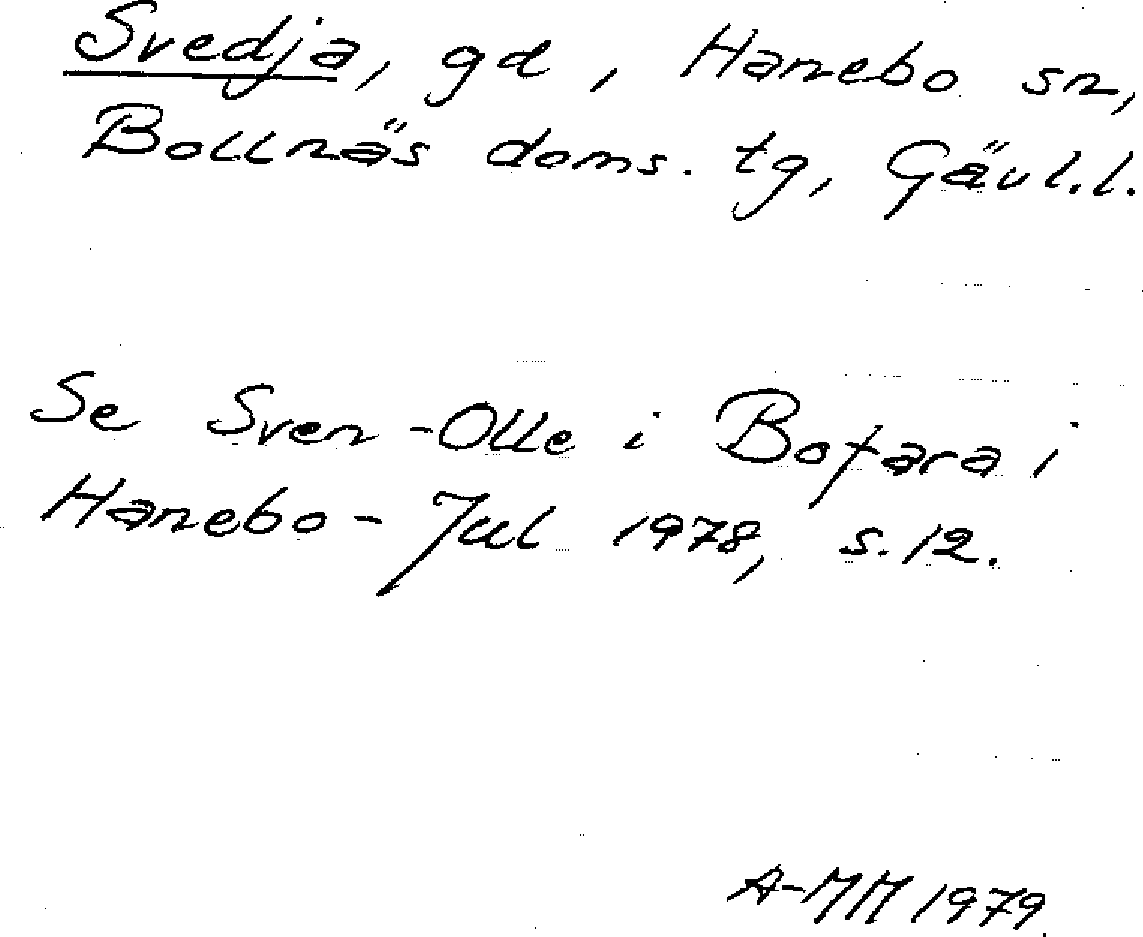 Svedja, gd, Hanebo sn,
Bollnäs doms. tg, Gävl.l.
Se Sven-Olle i Bofara i
Hanebo-Jul 1978, s.12.
A-MM 1979.